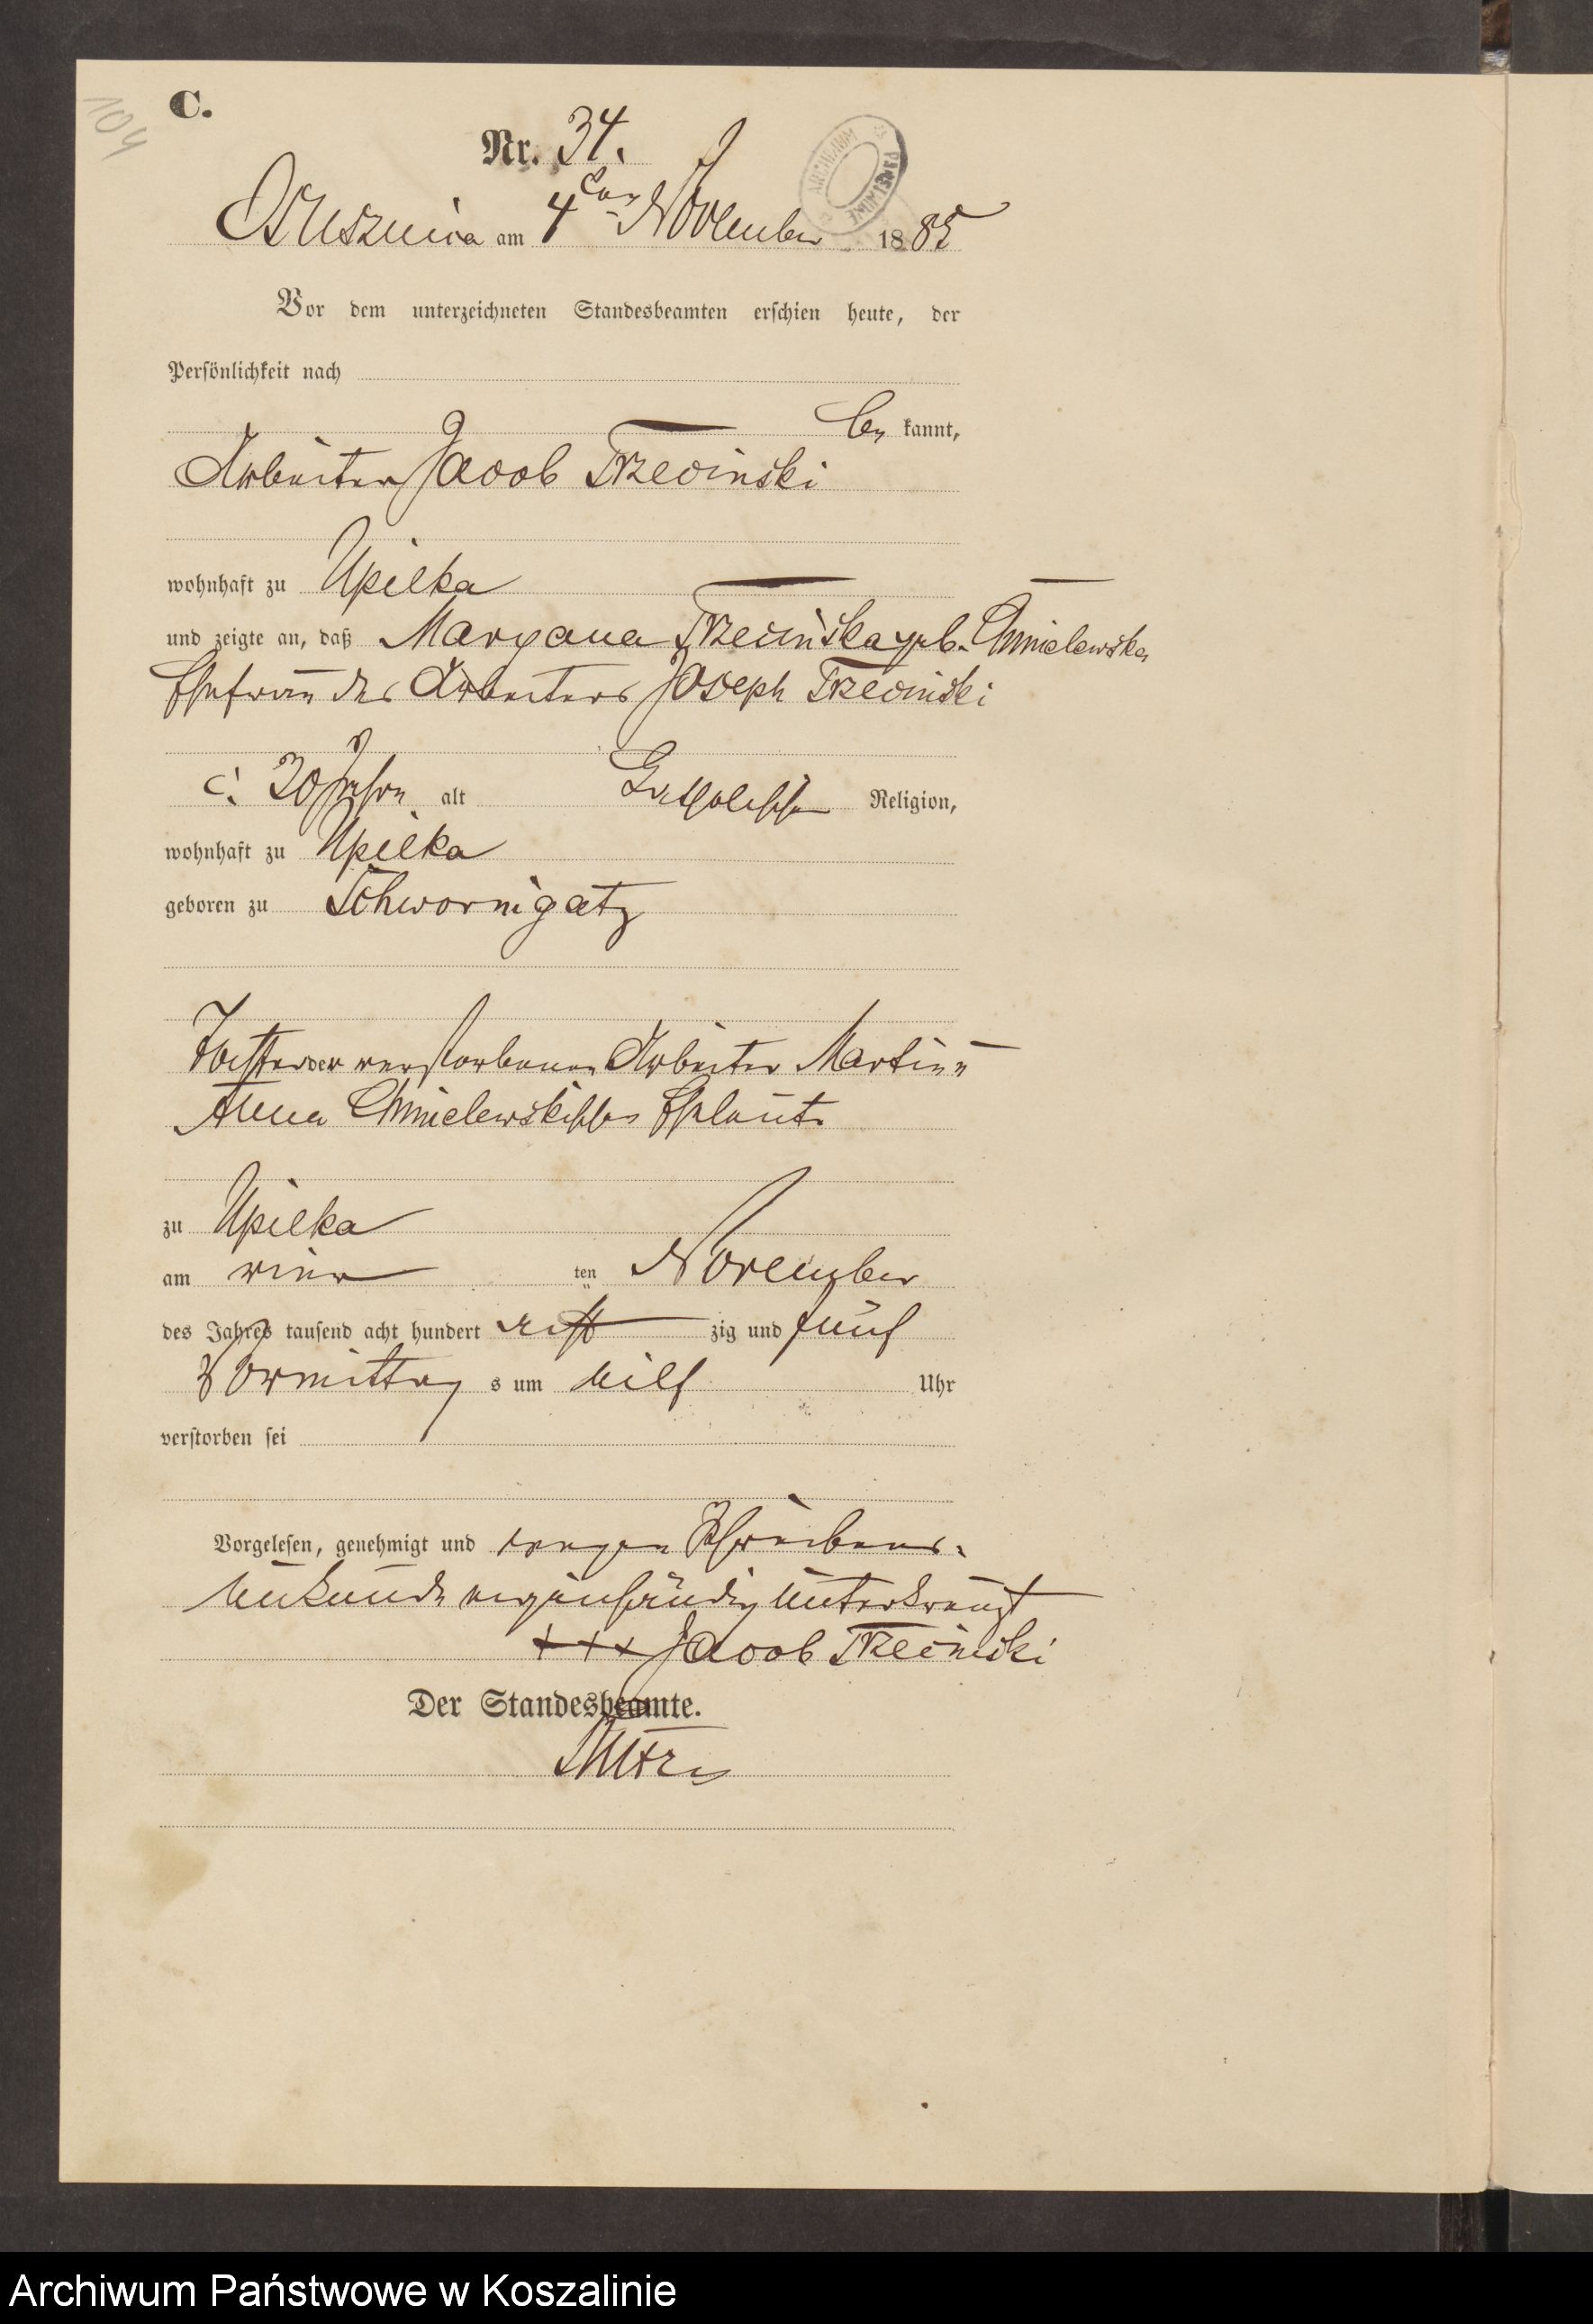 104
C.
Nr. 34.
Osusznica am 4ten November 1885
Vor dem unterzeichneten Standesbeamten erschien heute, der
Persönlichkeit nach
be kannt,
Arbeiter Jacob Trzecinski
wohnhaft zu Upilka
und zeigte an, daß Maryana Trzecinska geb. Chmielewska
Ehefrau des Arbeiters Joseph Trzecinski
c. 30 Jahre alt Katholischer Religion,
wohnhaft zu Upilka
geboren zu Schwornigatz
Tochter der verstorbenen Arbeiter Martin u
Anna Chmielewskischen Eheleute
zu Upilka
am vier ten November
des Jahres tausend acht hundert acht zig und fünf
Vormittag s um eilf Uhr
verstorben sei
Vorgelesen, genehmigt und wegen Schreibens-
unkunde eigenhändig unterkreuzt
+++ Jacob Trzecinski
Der Standesbeamte.
Archiwum Państwowe w Koszalinie